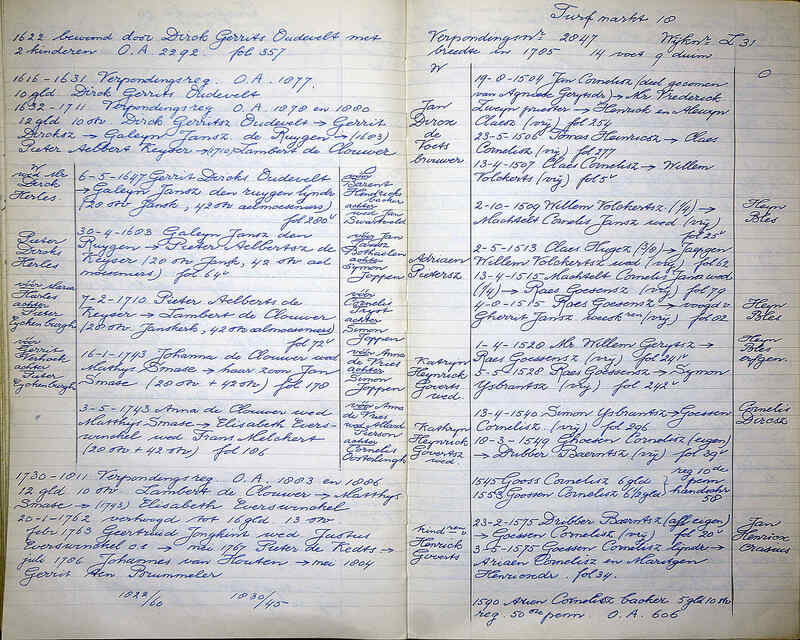 1622 bewoond door Dirck Gerrits Oudevelt met
2 kinderen O.A. 2292. fol 357
1616-1631 Verpondingsreg. O.A. 1877.
10 gld. Dirck Gerrits Oudevelt
1632-1711 Verpondingsreg. O.A. 1878 en 1880
12 gld 10 st Dirck Gerritsz Oudevelt → Gerrit
Dircksz → Galeyn Jansz. de Ruygen → (1683)
Pieter Aelbert Keyser → (1710) Lambert de Clouwer
W
wed Mr
Dirck
Herles.
6-5-1647 Gerrit Dircks Oudevelt
→ Galeyn Jansz den ruygen lynde
(20 st Jansk, 42 st aelmoeseniers)
fol 280v
O
vóór
Barent
Hendricks
backer
achter
wed Jan
Pieter
Dircks
Herles
30-4-1683 Galeyn Jansz den
Ruygen → Pieter Aelbertsz de
Keyser (20 st Jansk, 42 st ael
moeseniers) fol 64v
vóór Jan
Jacobsz
achter
Symon
Joppen
vóór Maria
Harles
achter
Pieter
Eyckenburgh
7-2-1710 Pieter Aelberts de
Keyser → Lambert de Clouwer
(20 st Janskerk, 42 st aelmoeseniers)
fol 72v
vóór
Cornelis
Tryst
achter
Simon
Joppen
vóór
Gerrit
achter
Pieter
Eyckenburgh
16-1-1743 Johanna de Clouwer wed
Mathys Smase → haar zoon Jan
Smase (20 st + 42 st) fol 178
vóór Anna
de Vries
achter
Simon
Joppen
3-5-1743 Anna de Clouwer wed
Matthys Smase → Elisabeth Evers-
winckel wed Frans Melchert
(20 st + 42 st) fol 186
vóór Anna
de Vries
wed Allard
Pierson
achter
Cornelis
Oostelengh
1730-1811 Verpondingsreg. O.A. 1883 en 1886
12 gld 10 st Lambert de Clouwer → Matthys
Smase → (1743) Elisabeth Everswinckel
20-1-1762 verhoogd tot 16 gld. 13 st
febr 1763 Geertruid Jongkint wed Justus
Everswinckel c.s → mei 1767 Pieter de Kedts →
juli 1786 Johannes van Houten → mei 1804
Gerrit Ten Brummeler
1822/60 1830/45
Turfmarkt 18
Verpondingsnr. 2847 Wijknr. L 31
breedte in 1785 14 voet 9 duim
W
O
Jan
Dircx
de
Voets
brouwer
19-8-1504 Jan Cornelisz (deel gecomen
van Agniese Gerytsdr) → Mr. Frederick
Zweyn priester → Henrick en Alewyn
Claesz (vrij) fol 254
23-5-1506 Tomas Henricsz → Claes
Cornelisz (vrij) fol 277
13-4-1507 Claes Cornelisz → Willem
Volckerts (vrij) fol 5v
2-10-1509 Willem Volckertsz (¼) →
Machtelt Cornelis Jansz wed (vrij)
fol 25v
Heyn
Bles
Adriaen
Pietersz
2-5-1513 Claes Hugez (¾) → Jaepgen
Willem Volckertsz wed (vrij) fol 62
13-4-1515 Machtelt Cornelis Jansz wed
(¼) → Raes Goesensz (vrij) fol 79
4-8-1515 Raes Goesensz → voogd v.
Gherrit Jansz weesk ren (vrij) fol 82
Heyn
Bles
Katryn
Heinrick
Goverts
wed.
1-4-1520 Mr. Willem Gerytsz →
Raes Goessensz (vrij) fol 24v
5-5-1528 Raes Goessensz → Symon
Ysbrantsz (vrij) fol 242v
Heyn
Bles
Katharyn
Heynrick
Govertsz
wed.
13-4-1540 Simon Ysbrantsz → Goessen
Cornelisz (vrij) fol 296
18-3-1549 Ghoesen Cornelisz (eigen)
→ Dribber Baerntsz (vrij) fol 39v
Cornelis
Dircxz
1545 Gooss Cornelisz 6 gld
1553 Goossen Cornelisz 6½ gld
reg 10de
penn
58
kind ren v
Henrick
Goverts
23-2-1575 Dribber Baerntsz (afl. eigen)
→ Goessen Cornelisz (vrij) fol 20v
3-5-1575 Goessen Cornelisz lynder →
Ariaen Cornelisz en Maritgen
Henricxdr. fol 34.
Jan
Henricx
Crasius
1590 Arien Cornelisz backer 5 gld 10 st
reg. 50ste penn. O.A. 606